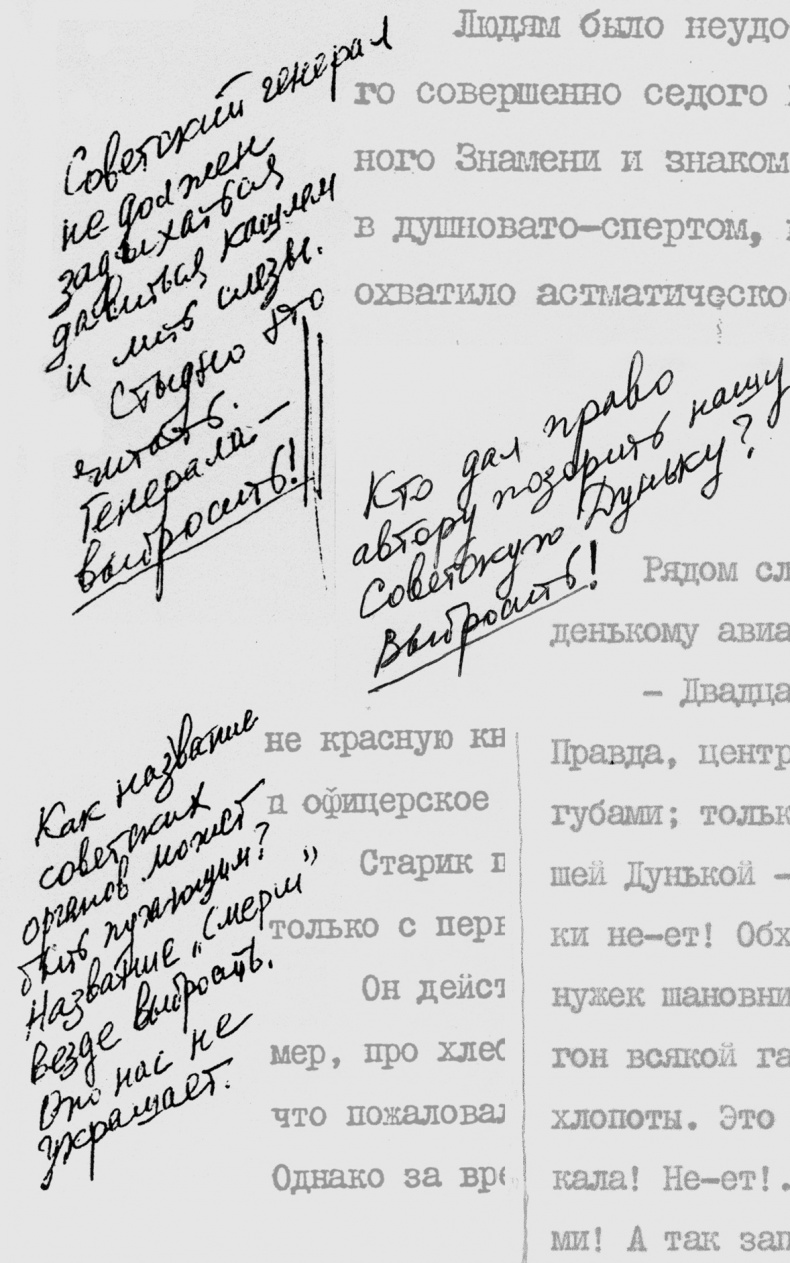 Советский генерал
не должен
задыхаться
давиться кашлем
и лить слезы.
Стыдно это
читать.
Генерала —
выбросить!
Людям было неудо
го совершенно седого
ного Знамени и знаком
в душновато-спертом,
охватило астматическо
Кто дал право
автору позорить нашу
Советскую Дуньку?
Выбросить!
Как название
советских
органов может
быть пугающим?
Название „Смерш”
везде выбросить.
Оно нас не
украшает.
не красную кн
п офицерское
Старик п
только с перв
Он дейст
мер, про хлеб
что пожаловал
Однако за вре
Рядом сл
денькому авиа
- Двадца
Правда, центр
губами; тольк
шей Дунькой -
ки не-ет! Обх
нужек шановни
гон всякой га
хлопоты. Это
кала! Не-ет!.
ми! А так зап